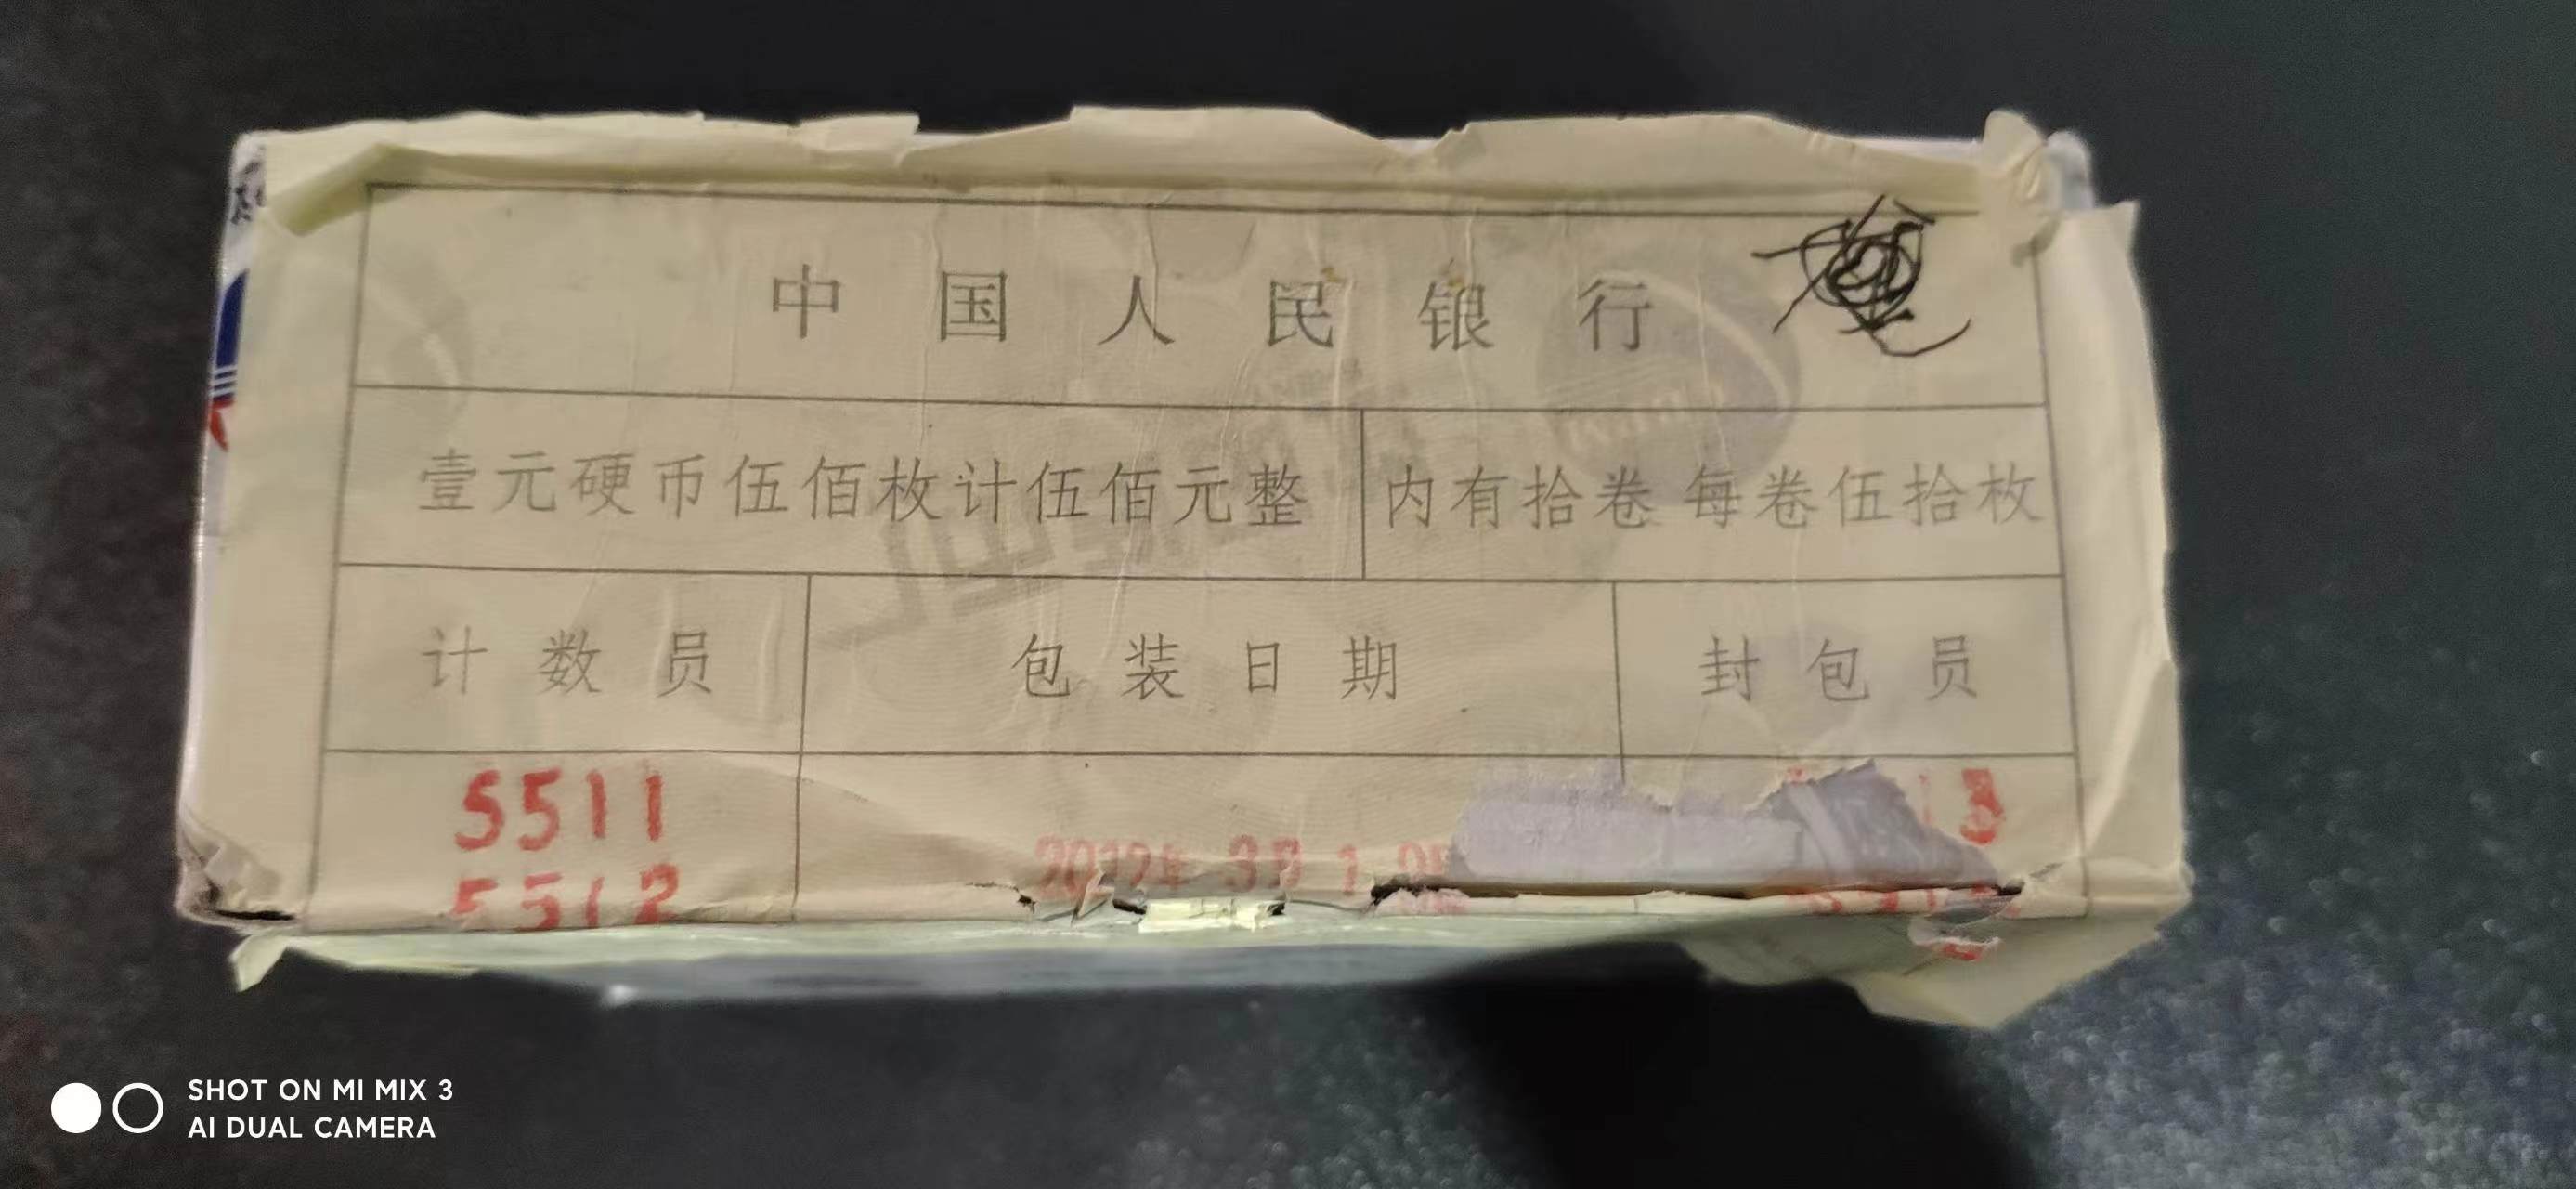 中国人民银行
壹元硬币伍佰枚计伍佰元整 内有拾卷 每卷伍拾枚
计数员 包装日期 封包员
5511
5512
SHOT ON MI MIX 3
AI DUAL CAMERA